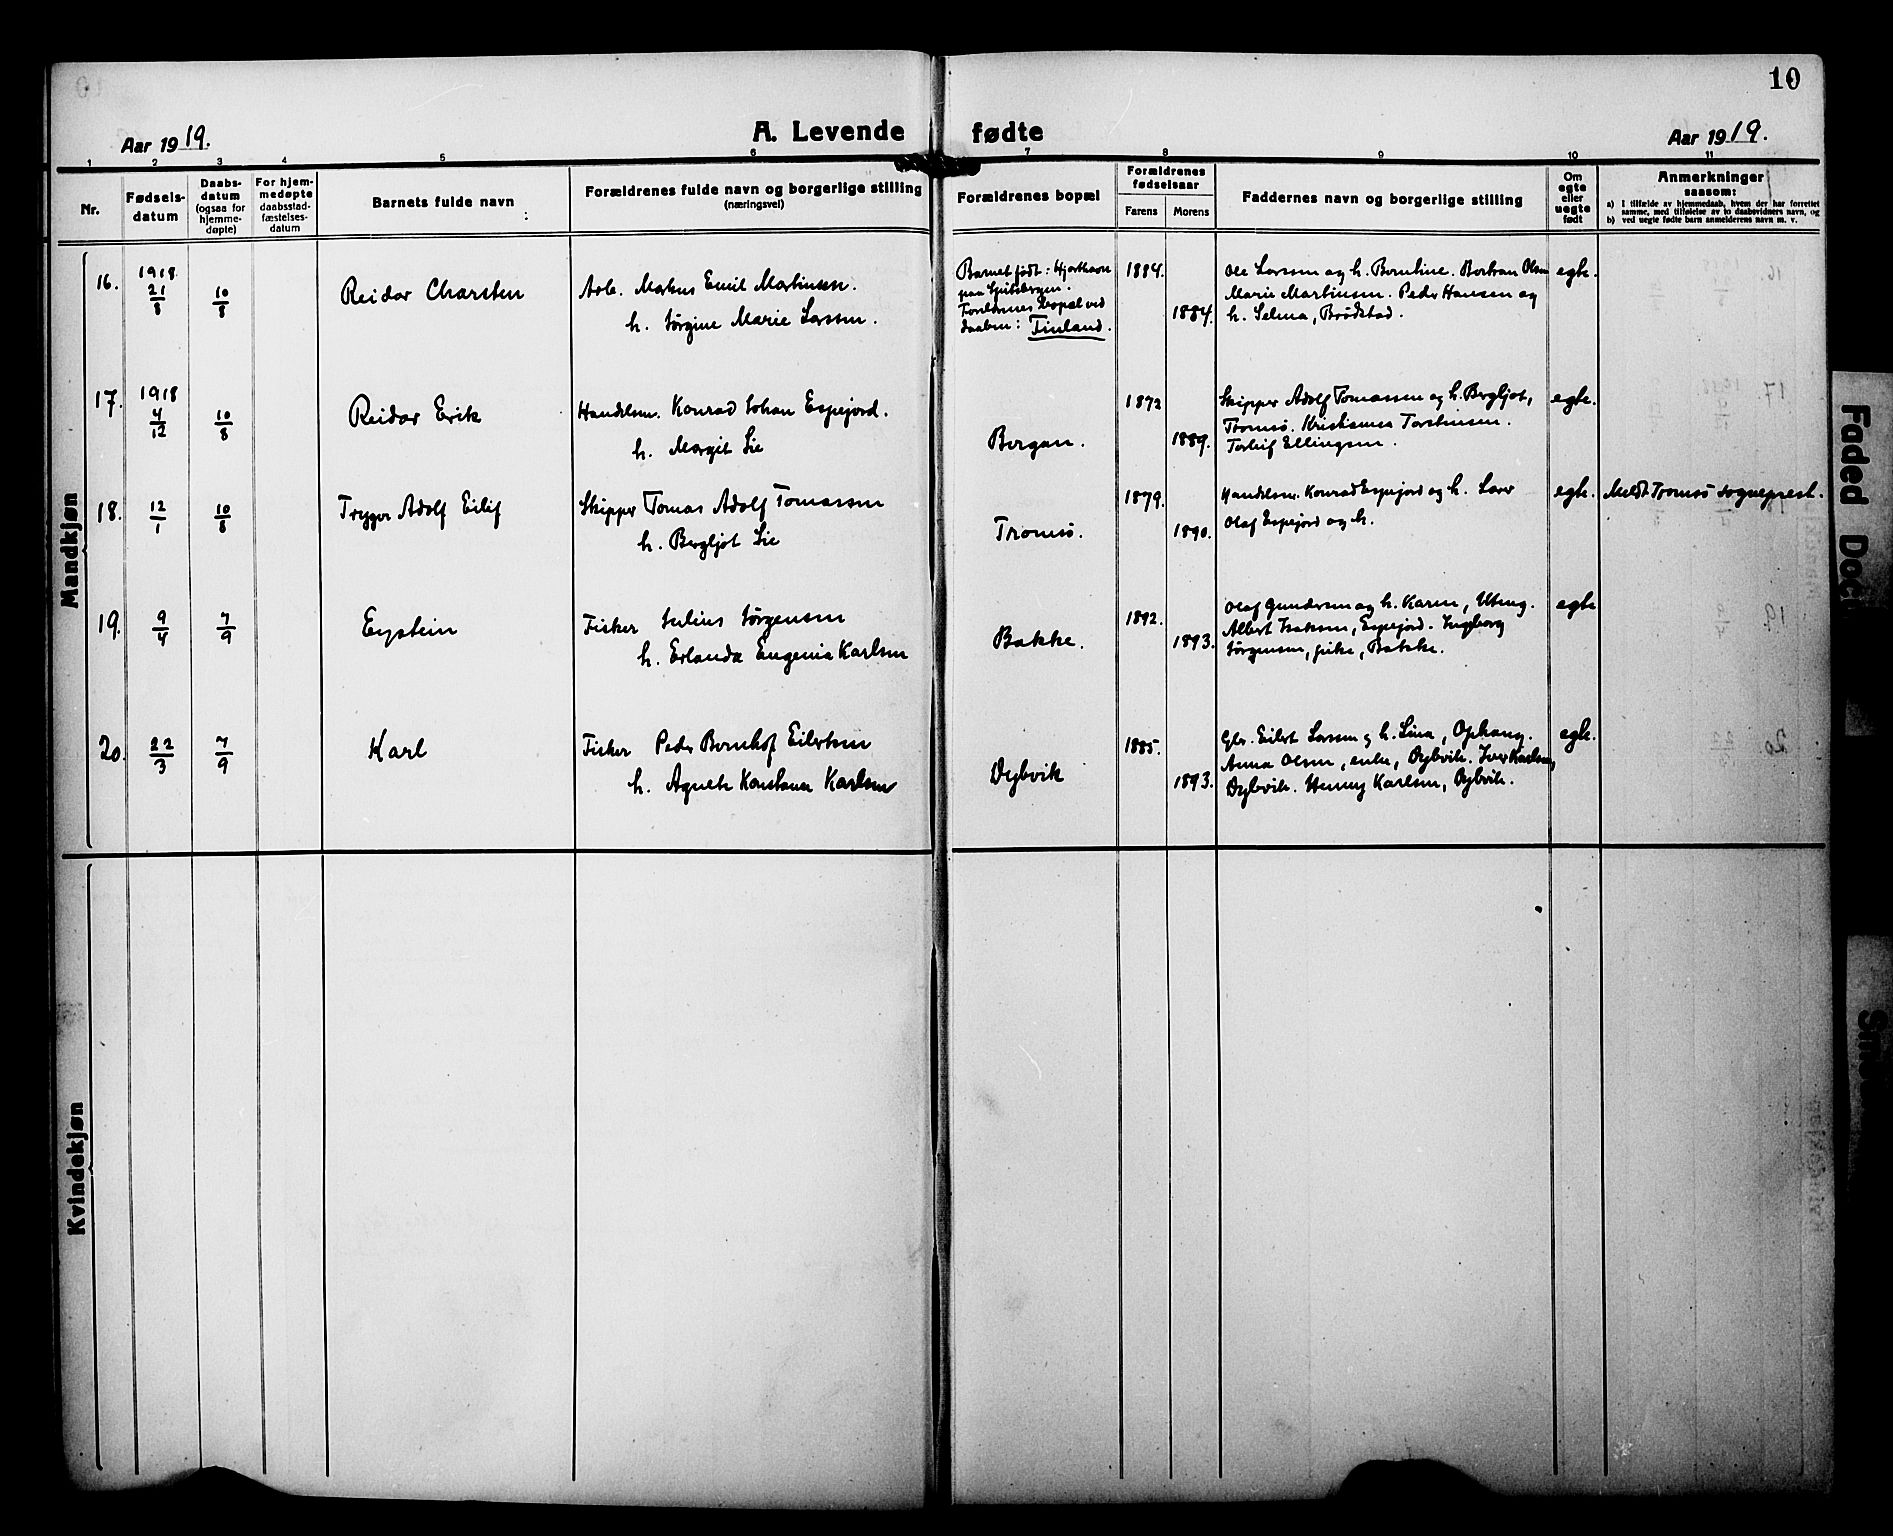 10
Aar 1919.
A. Levende fødte
Aar 1919.
1 2 3 4 5 6 7 8 9 10 11
Nr.
Fødselsdatum
Daabsdatum (ogsaa for hjemmedøpte)
For hjemmedøpte daabsstadfæstelsesdatum
Barnets fulde navn
Forældrenes fulde navn og borgerlige stilling
(næringsvei)
Forældrenes bopæl
Forældrenes fødselsaar
Farens Morens
Faddernes navn og borgerlige stilling
Om egte eller uegte født
Anmerkninger
saasom:
a) I tilfælde av hjemmedaab, hvem der har forrettet
samme, med tilføielse av to daabsvidners navn, og
b) ved uegte fødte barn anmelderens navn m. v.
Mandkjøn
16. 1918 21/8 10/8 Reidar Charsten
Arb. Markus Emil Martinsen.
h. Jørgine Marie Larssen.
Barnet født: Hjorthavn
paa Spitsbergen.
Foreldrenes bopæl ved
daaben: Finland.
1884. 1884.
Ole Larssen og h. Berntine. Olsen
Marie Martinsen. Peder Hansen og
h. Selma, Brödstad.
egte.
17. 1918 4/12 10/8 Reidar Erik
Handelsm. Konrad Johan Espejord.
h. Margit Lie
1872 1889.
Skipper Adolf Tomassen og h. Bergljot,
Tromsø. Torstensen.
Torleif Ellingsen.
egte.
18. 12/1 10/8 Trygve Adolf Eilif
Skipper Tomas Adolf Tomassen
h. Bergljot Lie
Tromsö.
1879. 1890.
Handelsm. Konrad Espejord og h.
Olaf Espejord og h.
egte.
Meldt Tromsö sogneprest.
19. 9/4 7/9 Eystein
Fisker Julius Jørgensen
h. Erlanda Eugenia Karlsen
Bakke.
1892. 1893.
Olaf Gundersen og h. Karen, Uteng.
Albert Isaksen, Espejord. Ingeborg
Jörgensen, pike, Bakke.
egte
20. 22/3 7/9 Karl
Fisker Peder Bernhof Eilertsen
h. Agnete Konstanse Karlsen
Dybvik
1885. 1893.
Gbr. Eilert Larssen og h. Lina,
Anna Olsen, enke, Dybvik. Iver Karlsen,
Dybvik. Henny Karlsen, Dybvik.
egte.
Kvindekjøn
Faded Doc